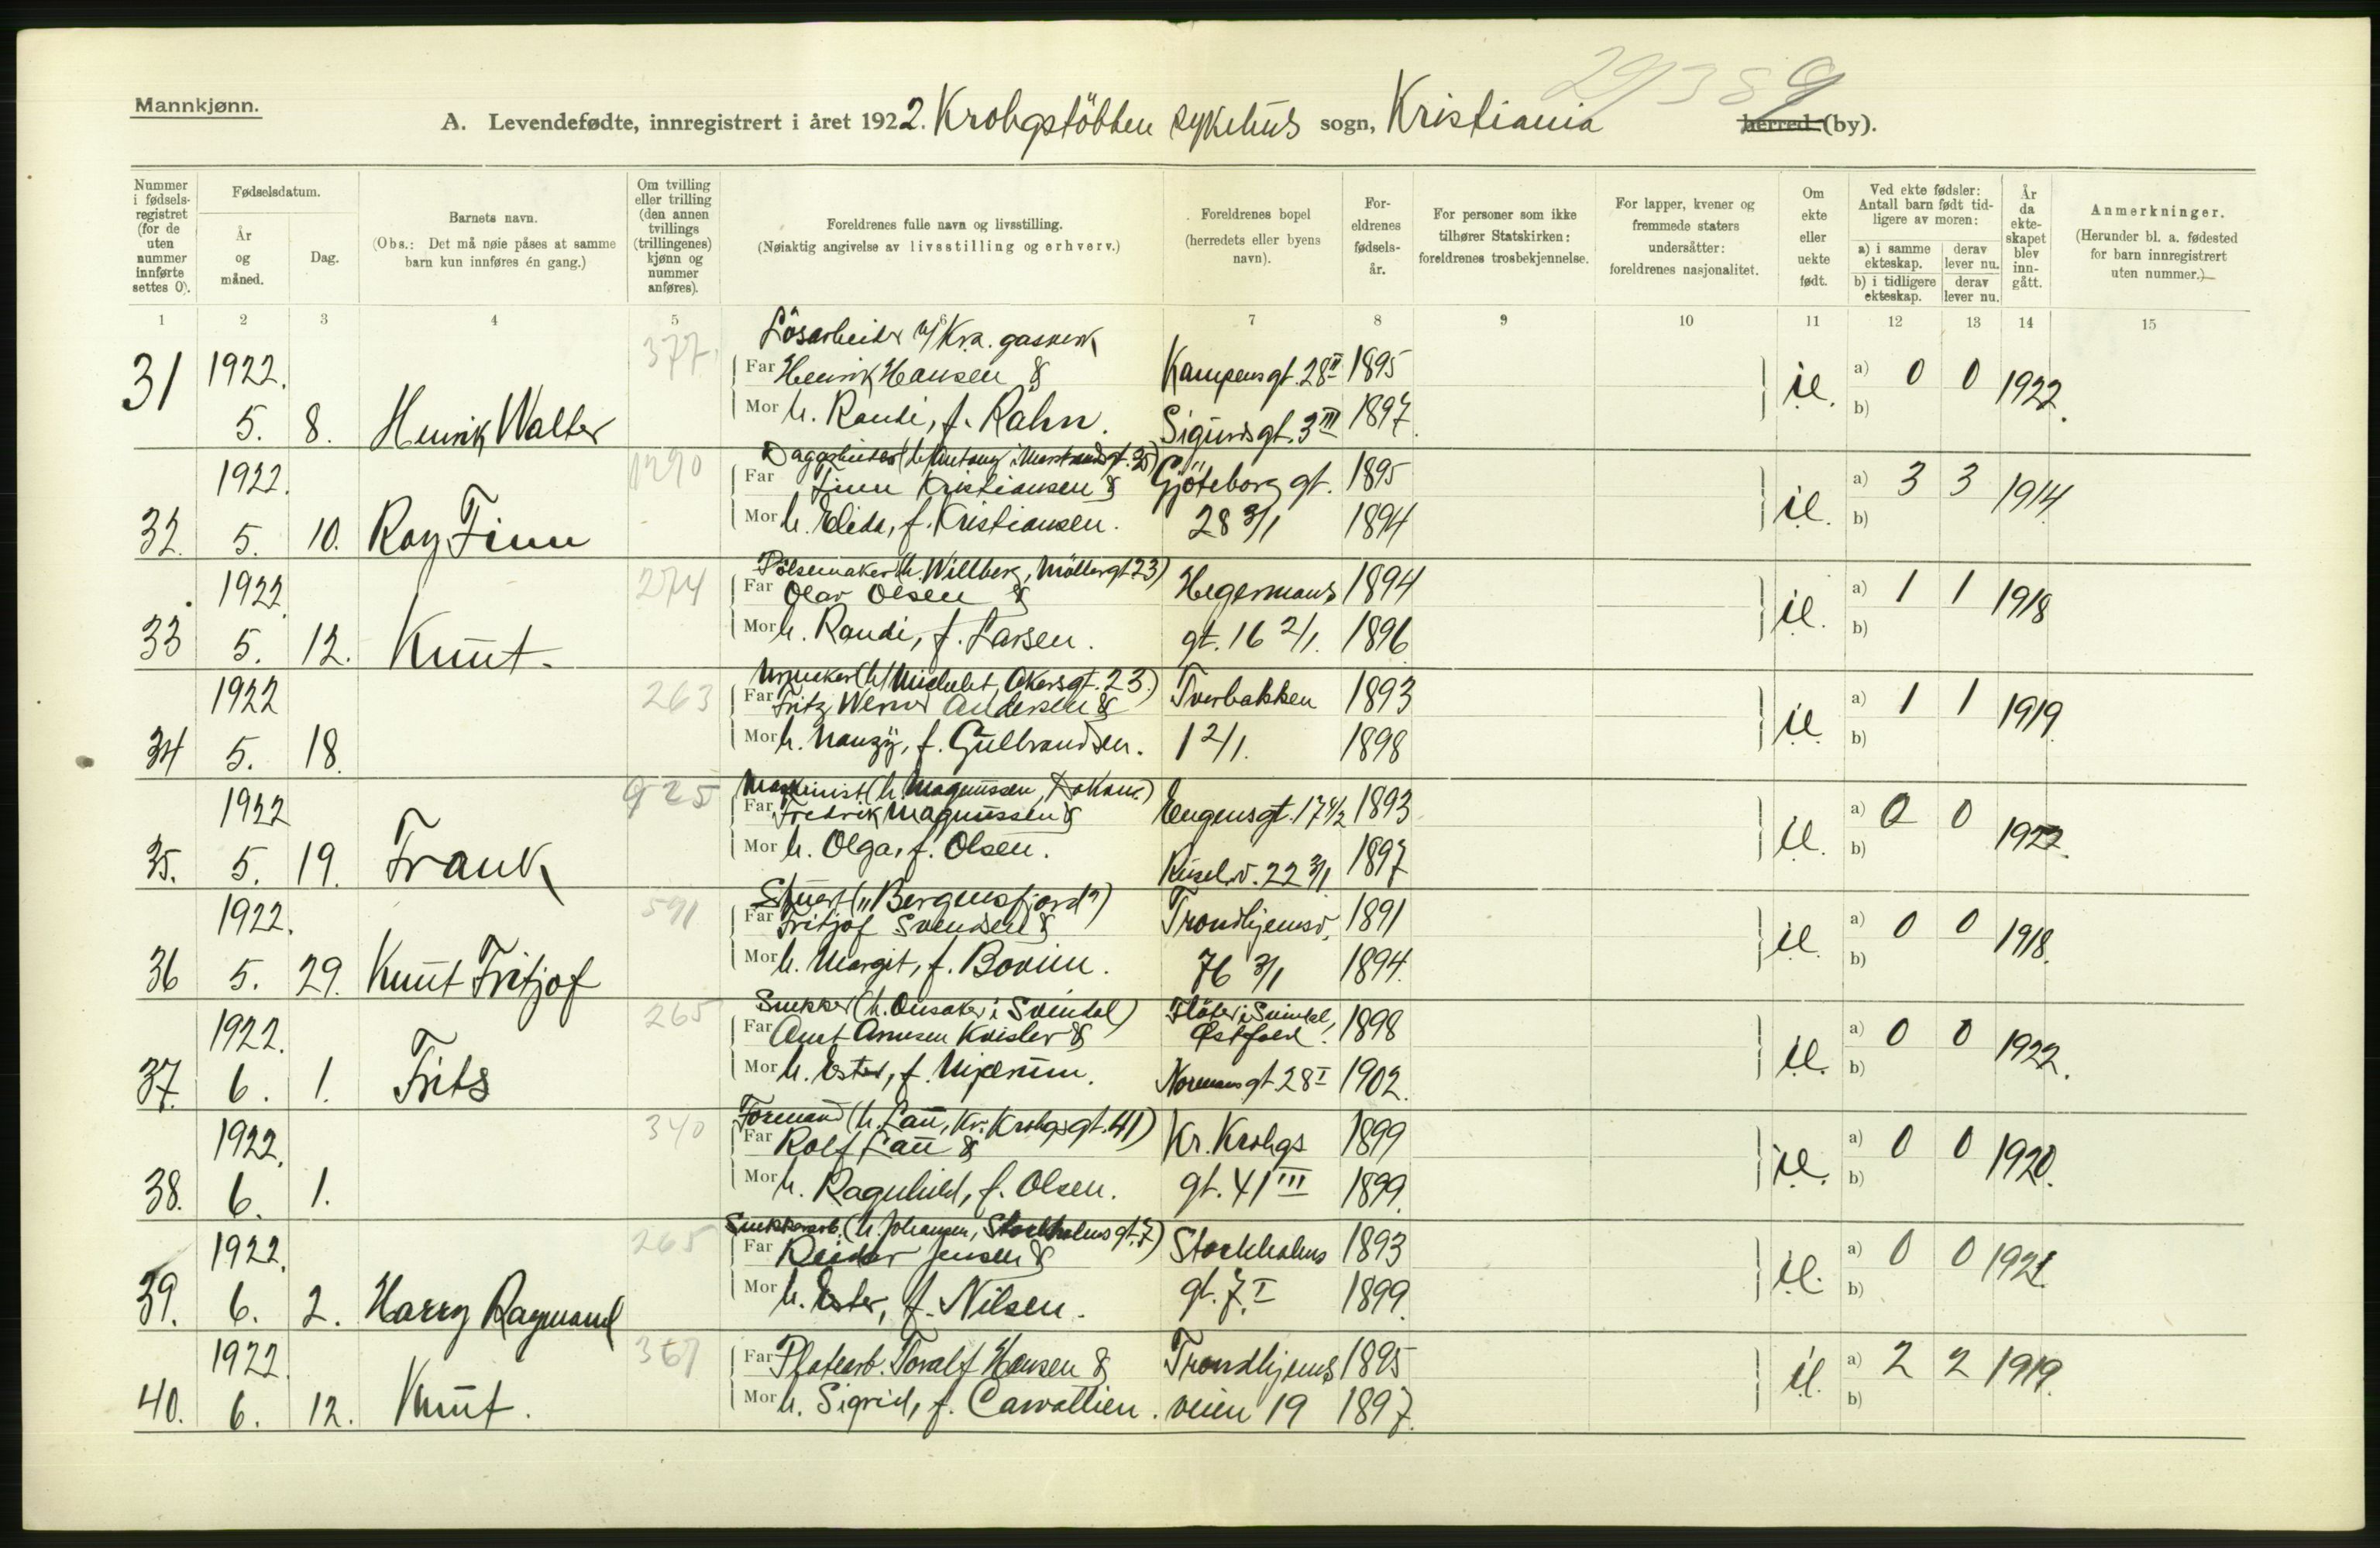 29/3 59
Mannkjønn.
A. Levendefødte, innregistrert i året 1922. Krohgstötten sykehus sogn, Kristiania herred (by).
Nummer i fødselsregistret (for de uten nummer innførte settes 0).
Fødselsdatum.
År og måned.
Dag.
Barnets navn.
(Obs.: Det må nøie påses at samme barn kun innføres én gang.)
Om tvilling eller trilling (den annen tvillings (trillingenes) kjønn og nummer anføres).
Foreldrenes fulle navn og livsstilling.
(Nøiaktig angivelse av livsstilling og erhverv.)
Foreldrenes bopel (herredets eller byens navn).
Foreldrenes fødselsår.
For personer som ikke tilhører Statskirken: foreldrenes trosbekjennelse.
For lapper, kvener og fremmede staters undersåtter: foreldrenes nasjonalitet.
Om ekte eller uekte født.
Ved ekte fødsler: Antall barn født tidligere av moren:
a) i samme ekteskap.
derav lever nu.
b) i tidligere ekteskap.
derav lever nu.
År da ekteskapet blev inngått.
Anmerkninger.
(Herunder bl. a. fødested for barn innregistrert uten nummer.)
1 2 3 4 5 6 7 8 9 10 11 12 13 14 15
377 Lösarbeider v/ Kra. gasverk
31 1922. Far Henrik Hansen & Kampensgt. 28 II 1895 a) 0 0 1922.
5. 8. Henrik Walter Mor h. Randi, f. Rahn. Sigurdsgt. 3 III 1897 b)
1922. Far Finn Kristiansen & Göteborg gt. 1895 a) 3 3 1914
32. 5. 10. Roy Finn Mor h. Elida, f. Kristiansen. 28 3/1 1894 b)
274 Pölsemaker (h. Willberg, Möllergt 23)
1922 Far Olav Olsen & Hegermans 1894 a) 1 1 1918
33 5. 12. Knut. Mor h. Randi, f. Larsen. gt. 16 2/1. 1896 b)
263 Akersgt. 23.)
1922 Far Fritz Werner Andersen & Tverbakken 1893 a) 1 1 1919
34 5. 18. Mor h. f. Gulbrandsen. 1 2/1. 1898 b)
925 Maskinist (h. Magnussen,
1922 Far Fredrik Magnussen & Eugensgt. 17 4/2 1893 a) 0 0 1922.
35. 5. 19. Frank Mor h. Olga, f. Olsen. 22 3/1 1897 b)
591 Stuert („Bergensfjord")
1922. Far Fritjof Svendsen & Trondhjemsv. 1891 a) 0 0 1918.
36 5. 29. Knut Fritjof Mor h. Margit, f. Bovim. 76 3/1 1894. b)
265 Snekker (h. Onsaker i Svindal) Flöter i Svindal,
1922. Far Arnt Arnesen Kvisler & Østfold. 1898 a) 0 0 1922.
37. 6. 1. Frits Mor h. Ester, f. Mjærum. Normansgt. 28 I 1902. b)
340 Formand (h. Lau, Kr. Krohgsgt. 41)
1922. Far Rolf Lau & Kr. Krohgs 1899 a) 0 0 1920.
38. 6. 1. Mor h. Ragnhild, f. Olsen. gt. 41 III 1899. b)
265 Snekkerarb. (h. Johansen, Stockholmsgt. 7)
1922. Far Reidar Jensen & Stockholms 1893 a) 0 0 1921.
39. 6. 2. Harry Raymond Mor h. Ester, f. Nilsen. gt. 7. I 1899. b)
1922 Far Platearb. Toralf Hansen & Trondhjems 1895 a) 2 2 1919.
40. 6. 12. Knut. Mor h. Sigrid, f. veien 19 1897. b)